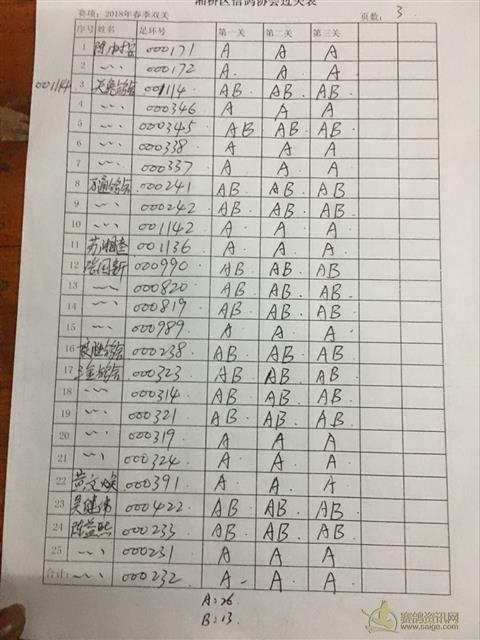 湘桥区信鸽协会过关表
赛项：2018年春季双关 页数： 3
序号 姓名 足环号 第一关 第二关 第三关
1 000171 A A A
2 〃 000172 A A A
001114 3 001114 AB AB AB
4 〃 000346 A A A
5 〃 000345 AB AB AB
6 〃 000338 A A A
7 〃 000337 A A A
8 000241 AB AB AB
9 〃 000242 AB AB AB
10 〃 001142 A A A
11 苏湘奎 001136 A A A
12 陈国新 000990 AB AB AB
13 〃 000820 AB AB AB
14 〃 000819 AB AB AB
15 〃 000989 A A A
16 000238 AB AB AB
17 000323 AB AB AB
18 〃 000314 AB AB AB
19 〃 000321 AB AB AB
20 〃 000319 A A A
21 〃 000324 A A A
22 黄文焕 000391 A A A
23 吴健伟 000422 AB AB AB
24 陈益熙 000233 AB AB AB
25 〃 000231 A A A
合计： 〃 000232 A A A
A=26
B=13
赛鸽资讯网
www.saige.com